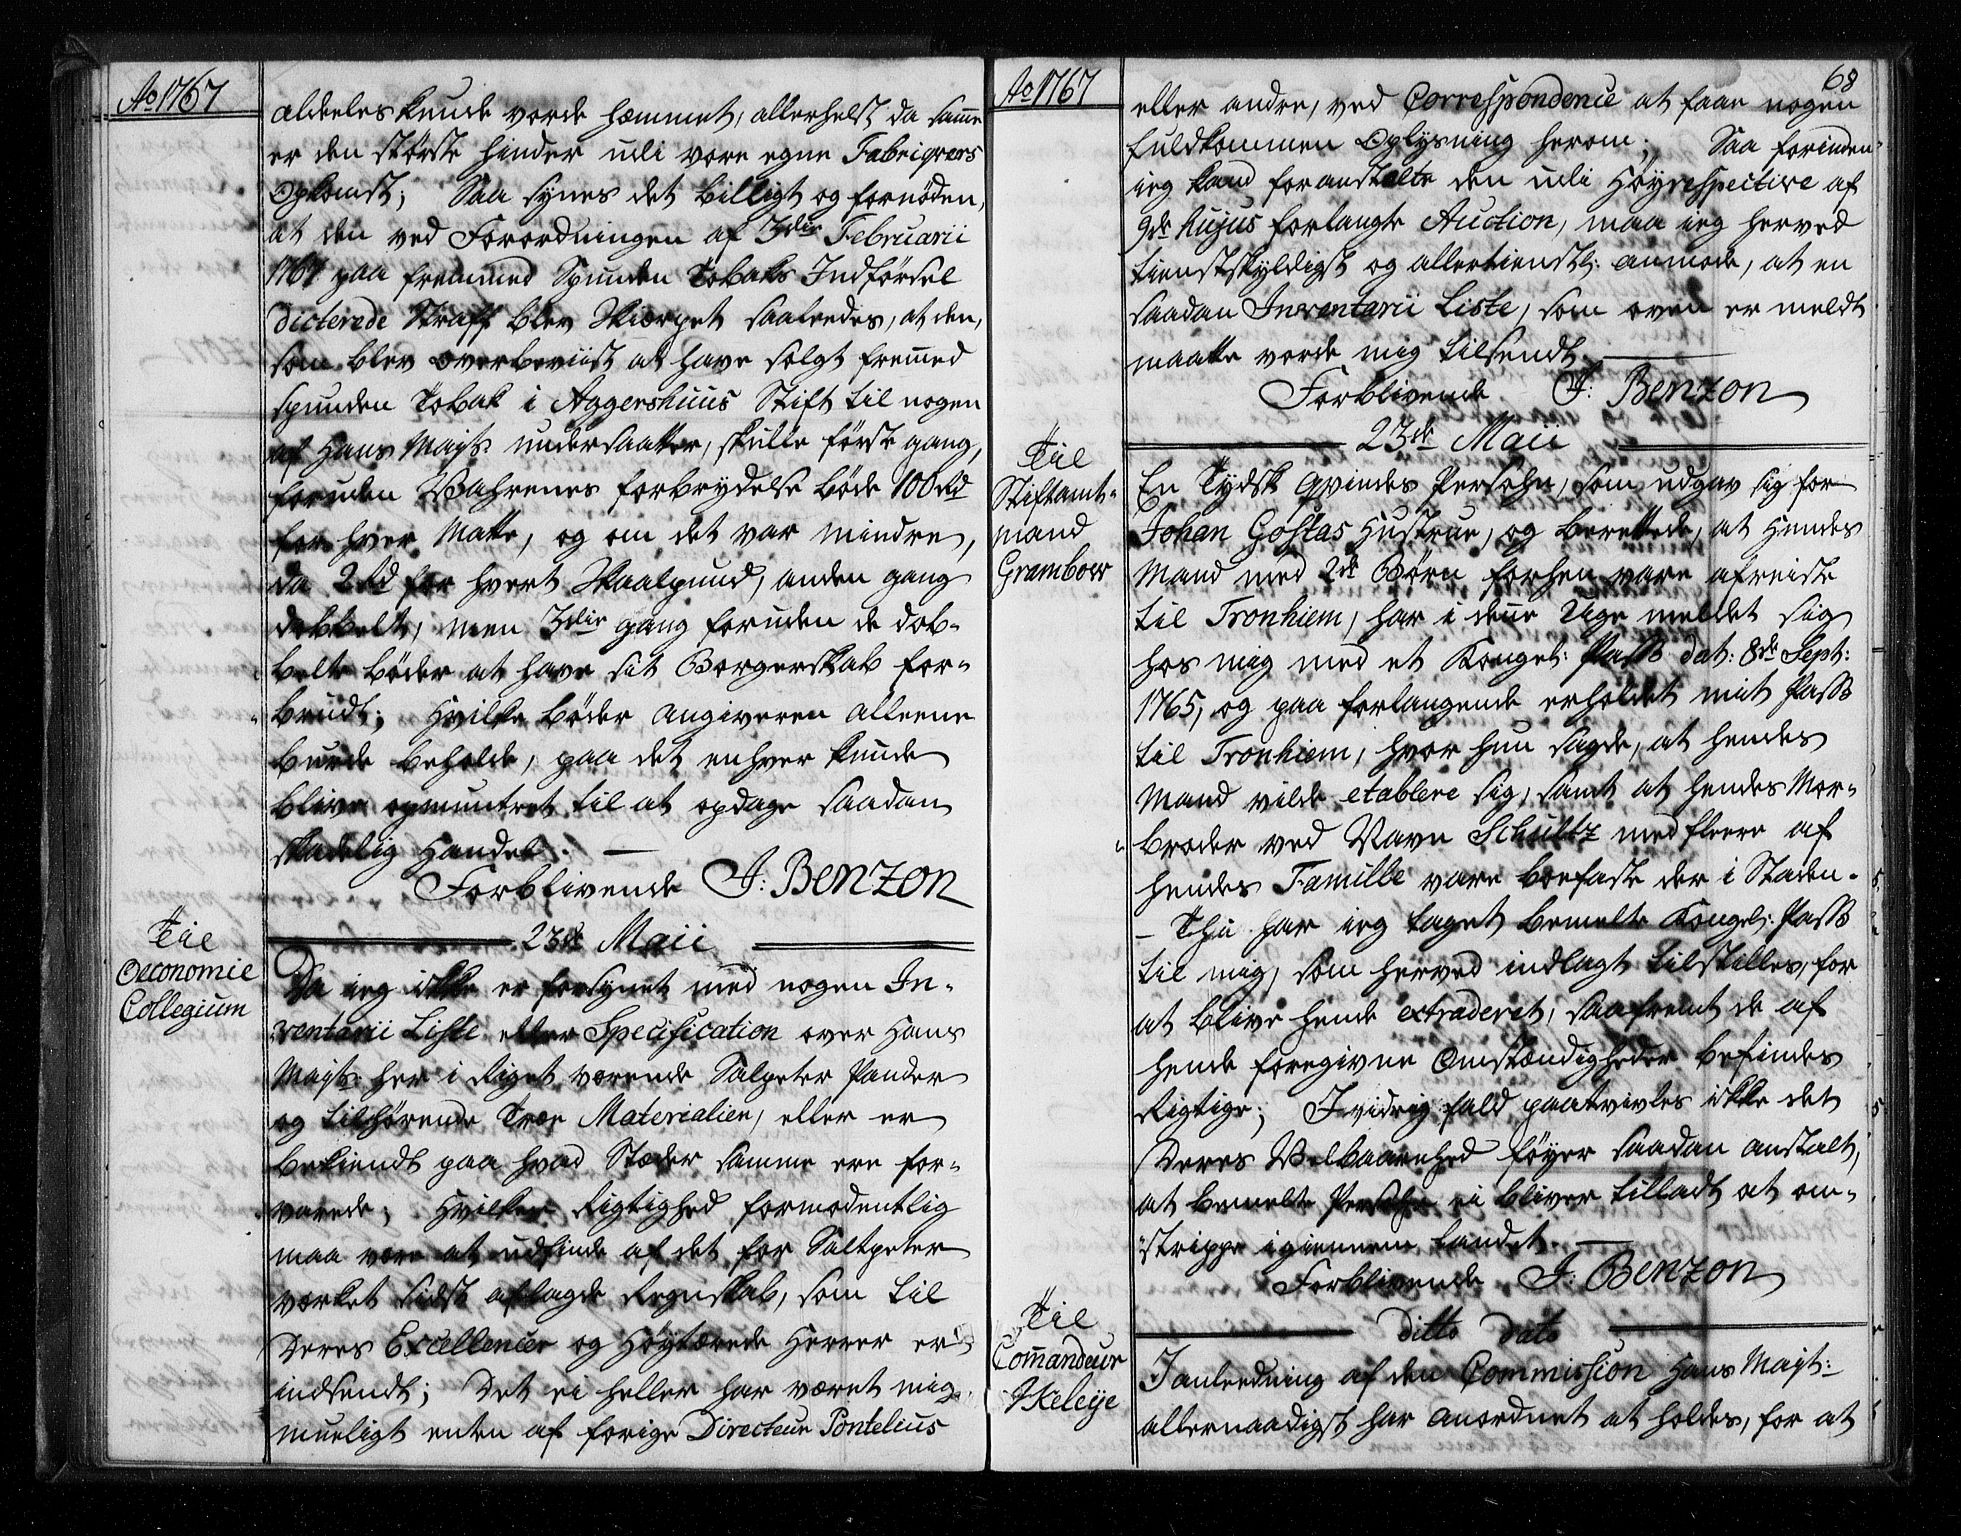 Ao 1767
aldeeles kunde vorde hæmmet, allerhelst da samme
er den største hinder udi vore egne Fabriqvers
Opkomst; Saa synes det billigt og fornøden,
at den ved Forordningen af 3die Februarii
1767 paa fremmed Spunden Tobaks Indførsel
dicterede Straff blev skiærpet saaledes, at den,
som blev overbeviist at have solgt fremed
spunden Tobak i Aggershuus Stift til nogen
af Hans Mayts: undersaatter, skulle første gang,
foruden Wahrenes forbrydelse bøde 100 rd
for hver Matte, og om det var mindre,
da 2 rd for hvert Skaalpund, anden gang
dobbelt, men 3die gang foruden de dob-
belte bøder at have sit Borgerskab for-
brudt; Hvilke bøder angiveren alleene
burde beholde, paa det enhver kunde
blive opmuntret til at opdage saadan
skadelig Handel.
Forblivende J: Benzon
23de Maii
Til
Oeconomie
Collegium
Da ieg ikke er forsynet med nogen In-
ventarii Liste eller Specification over Hans
Mayts: her i Riget værende Salpeter Pander
og tilhørende Træe Materialier, eller er
bekiendt paa hvad Stæder samme ere for-
varede; Hvilken Rigtighed formodentlig
maa være at udfinde af det for Saltpeter
værket sidst aflagde Regnskab, som til
Deres Excellencer og Høytærede Herrer er
indsendt; Det ei heller har været mig
mueligt enten af forige Directeur Pontelius
Ao 1767
68
eller andre, ved Correspondence at faae nogen
fuldkommen Oplysning herom; Saa forinden
ieg kand foranstalte den udi Høyrespective af
9de hujus forlangte Auction, maa ieg herved
tienstskyldigst og allertienstl: anmode, at en
saadan Inventarii Liste, som oven er meldt
maatte vorde mig tilsendt.
Forblivende J: Benzon
23de Maii
Til
Stiftamt-
mand
Grambow
En Tydsk Qvindes Persohn, som udgav sig for
Johan Gostas Hustrue, og berettede, at Hendes
Mand med 2de Børn forhen vare afreiste
til Tronhiem, har i denne Uge meldet sig
hos mig med et Kongel: Pass dat: 8de Sept:
1765, og paa forlangende erholdet mit Pass
til Tronhiem, hvor hun sagde, at hendes
Mand vilde etablere sig, samt at hendes Mor-
broder ved Navn Schultz med fleere af
hendes Famille vare boefaste der i Staden.
– Thi har ieg taget bemelte Kongel: Pass
til mig, som herved indlagt tilstilles, for
at blive hende extraderet, saafremt de af
hende foregivne Omstændigheder befindes
Rigtige; I vidrig fald paatvivles ikke det
Deres Velbaarenhed føyer saadan anstalt,
at bemelte Persohn ei bliver tilladt at om-
strippe igiennem Landet.
Forblivende J: Benzon
ditto dato
Til
Comandeur
Keleye
I anleedning af den Commission Hans Mayt:
allernaadigst har anordnet at holdes, for at